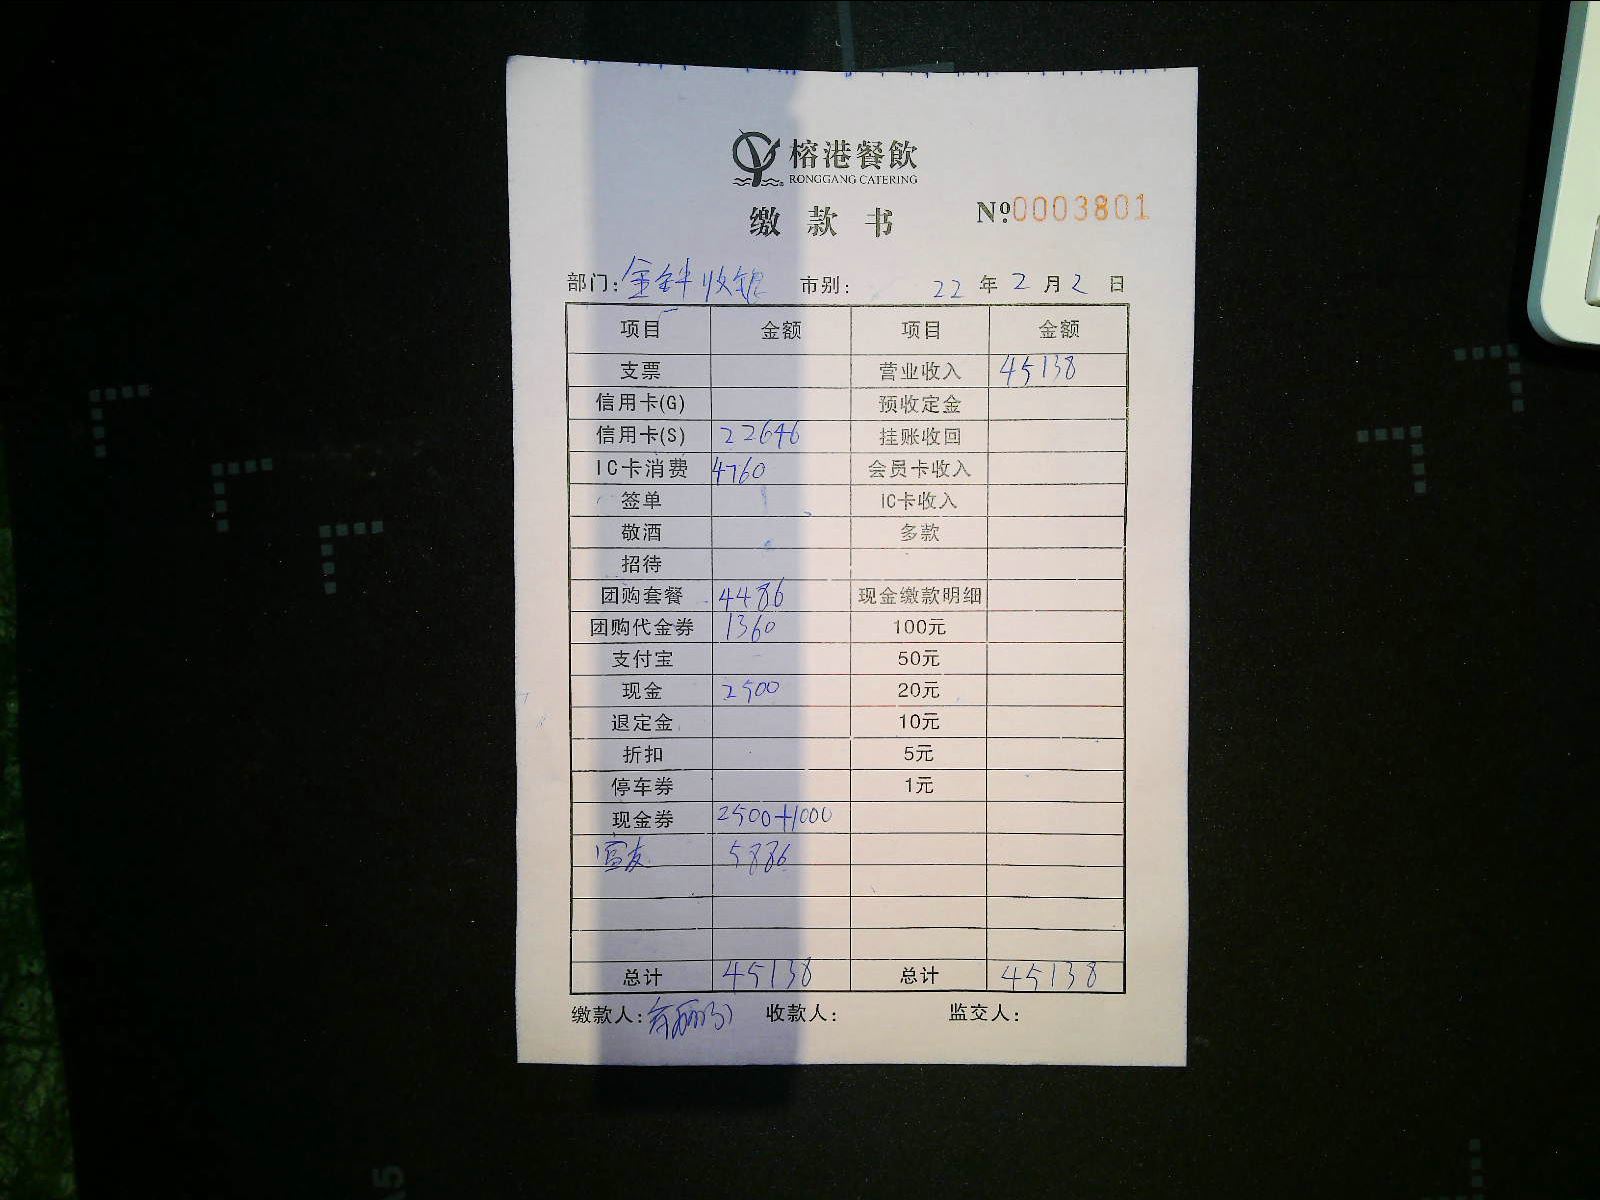 榕港餐飲
RONGGANG CATERING
缴款书 №0003801
部门: 金 收银 市别: 22年2月2日
项目 金额 项目 金额
支票 营业收入 45138
信用卡(G) 预收定金
信用卡(S) 22646 挂账收回
IC卡消费 4760 会员卡收入
签单 IC卡收入
敬酒 多款
招待
团购套餐 4486 现金缴款明细
团购代金券 1360 100元
支付宝 50元
现金 2500 20元
退定金 10元
折扣 5元
停车券 1元
现金券 2500+1000
5886
总计 45138 总计 45138
缴款人: 收款人: 监交人: